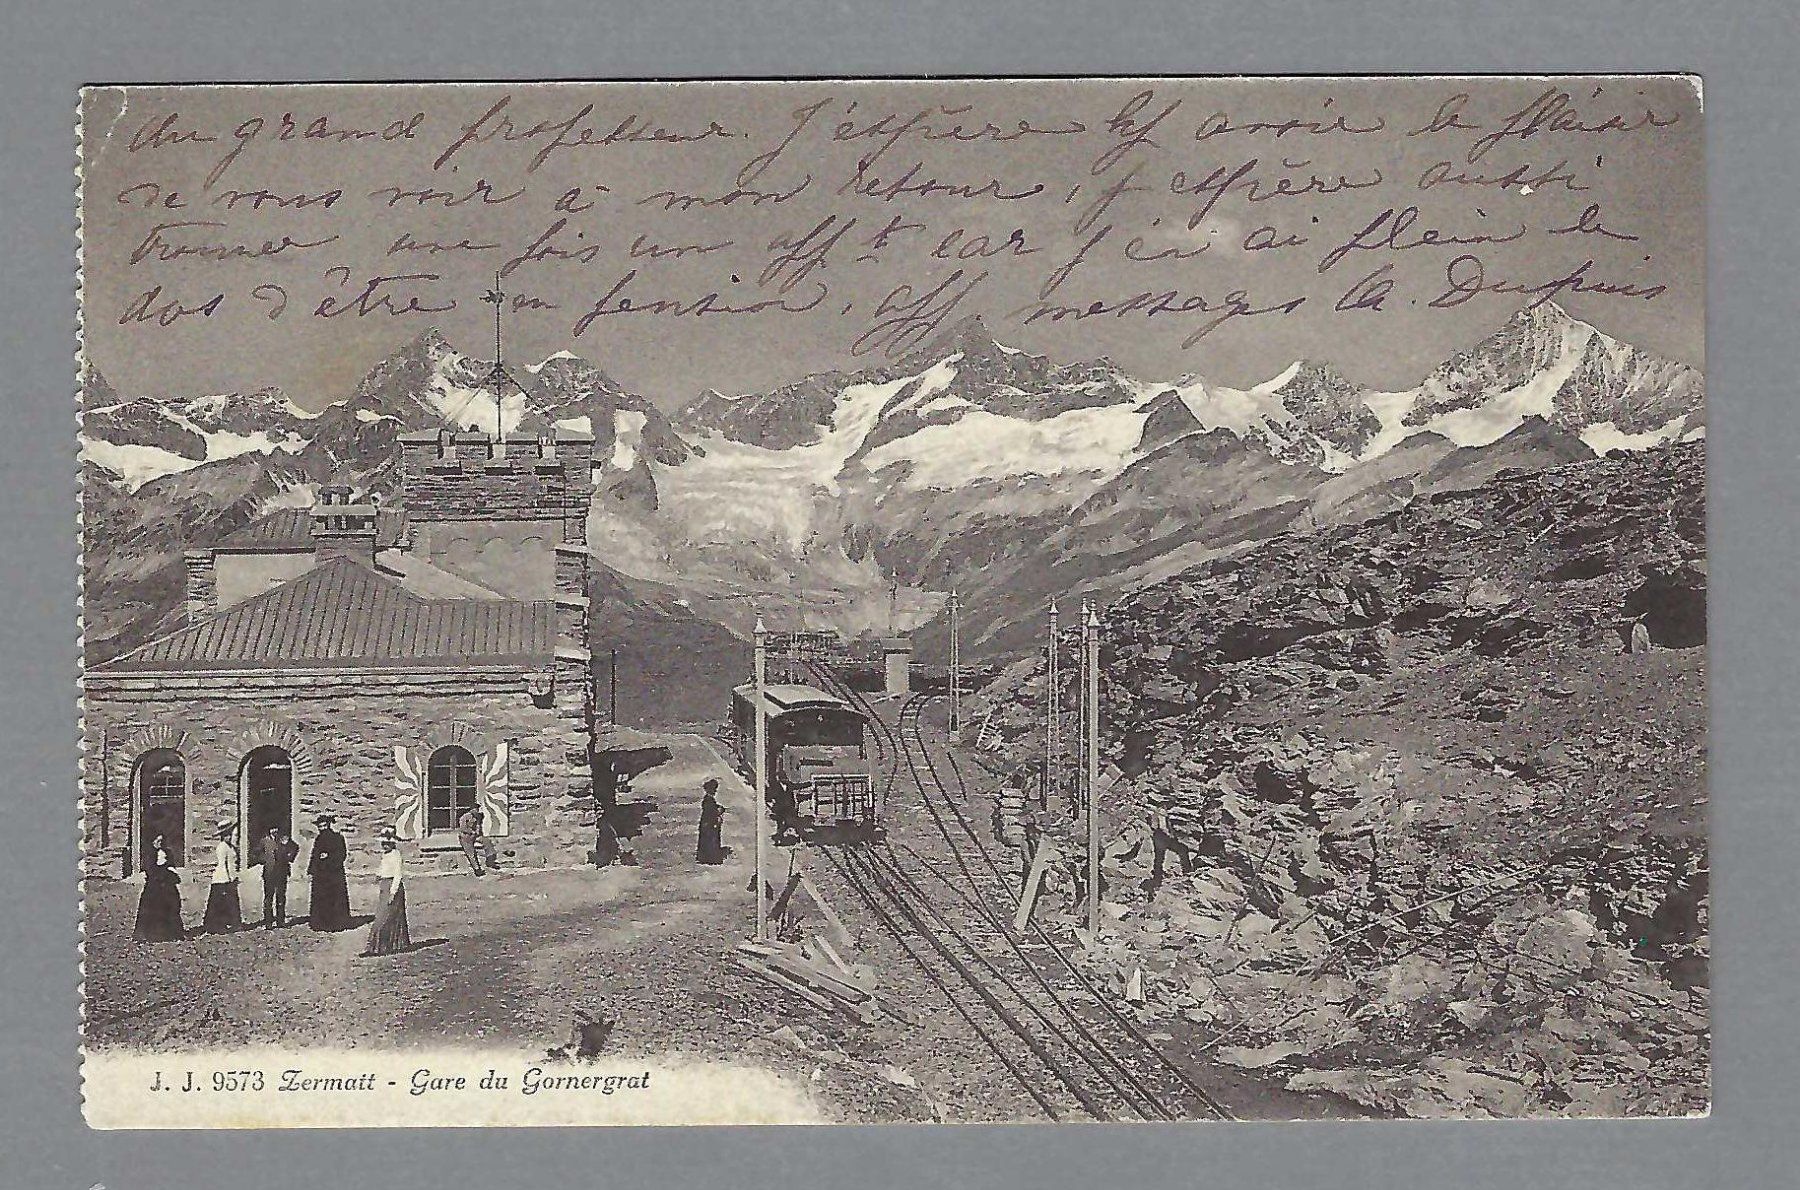 du grand professeur. J'espère bf avoir le plaisir
de vous voir à mon retour, j'espère aussi
trouver une fois un aff.t car j'en ai plein le
dos d'être en pension. aff. messages A. Dupuis
J. J. 9573 Zermatt - Gare du Gornergrat